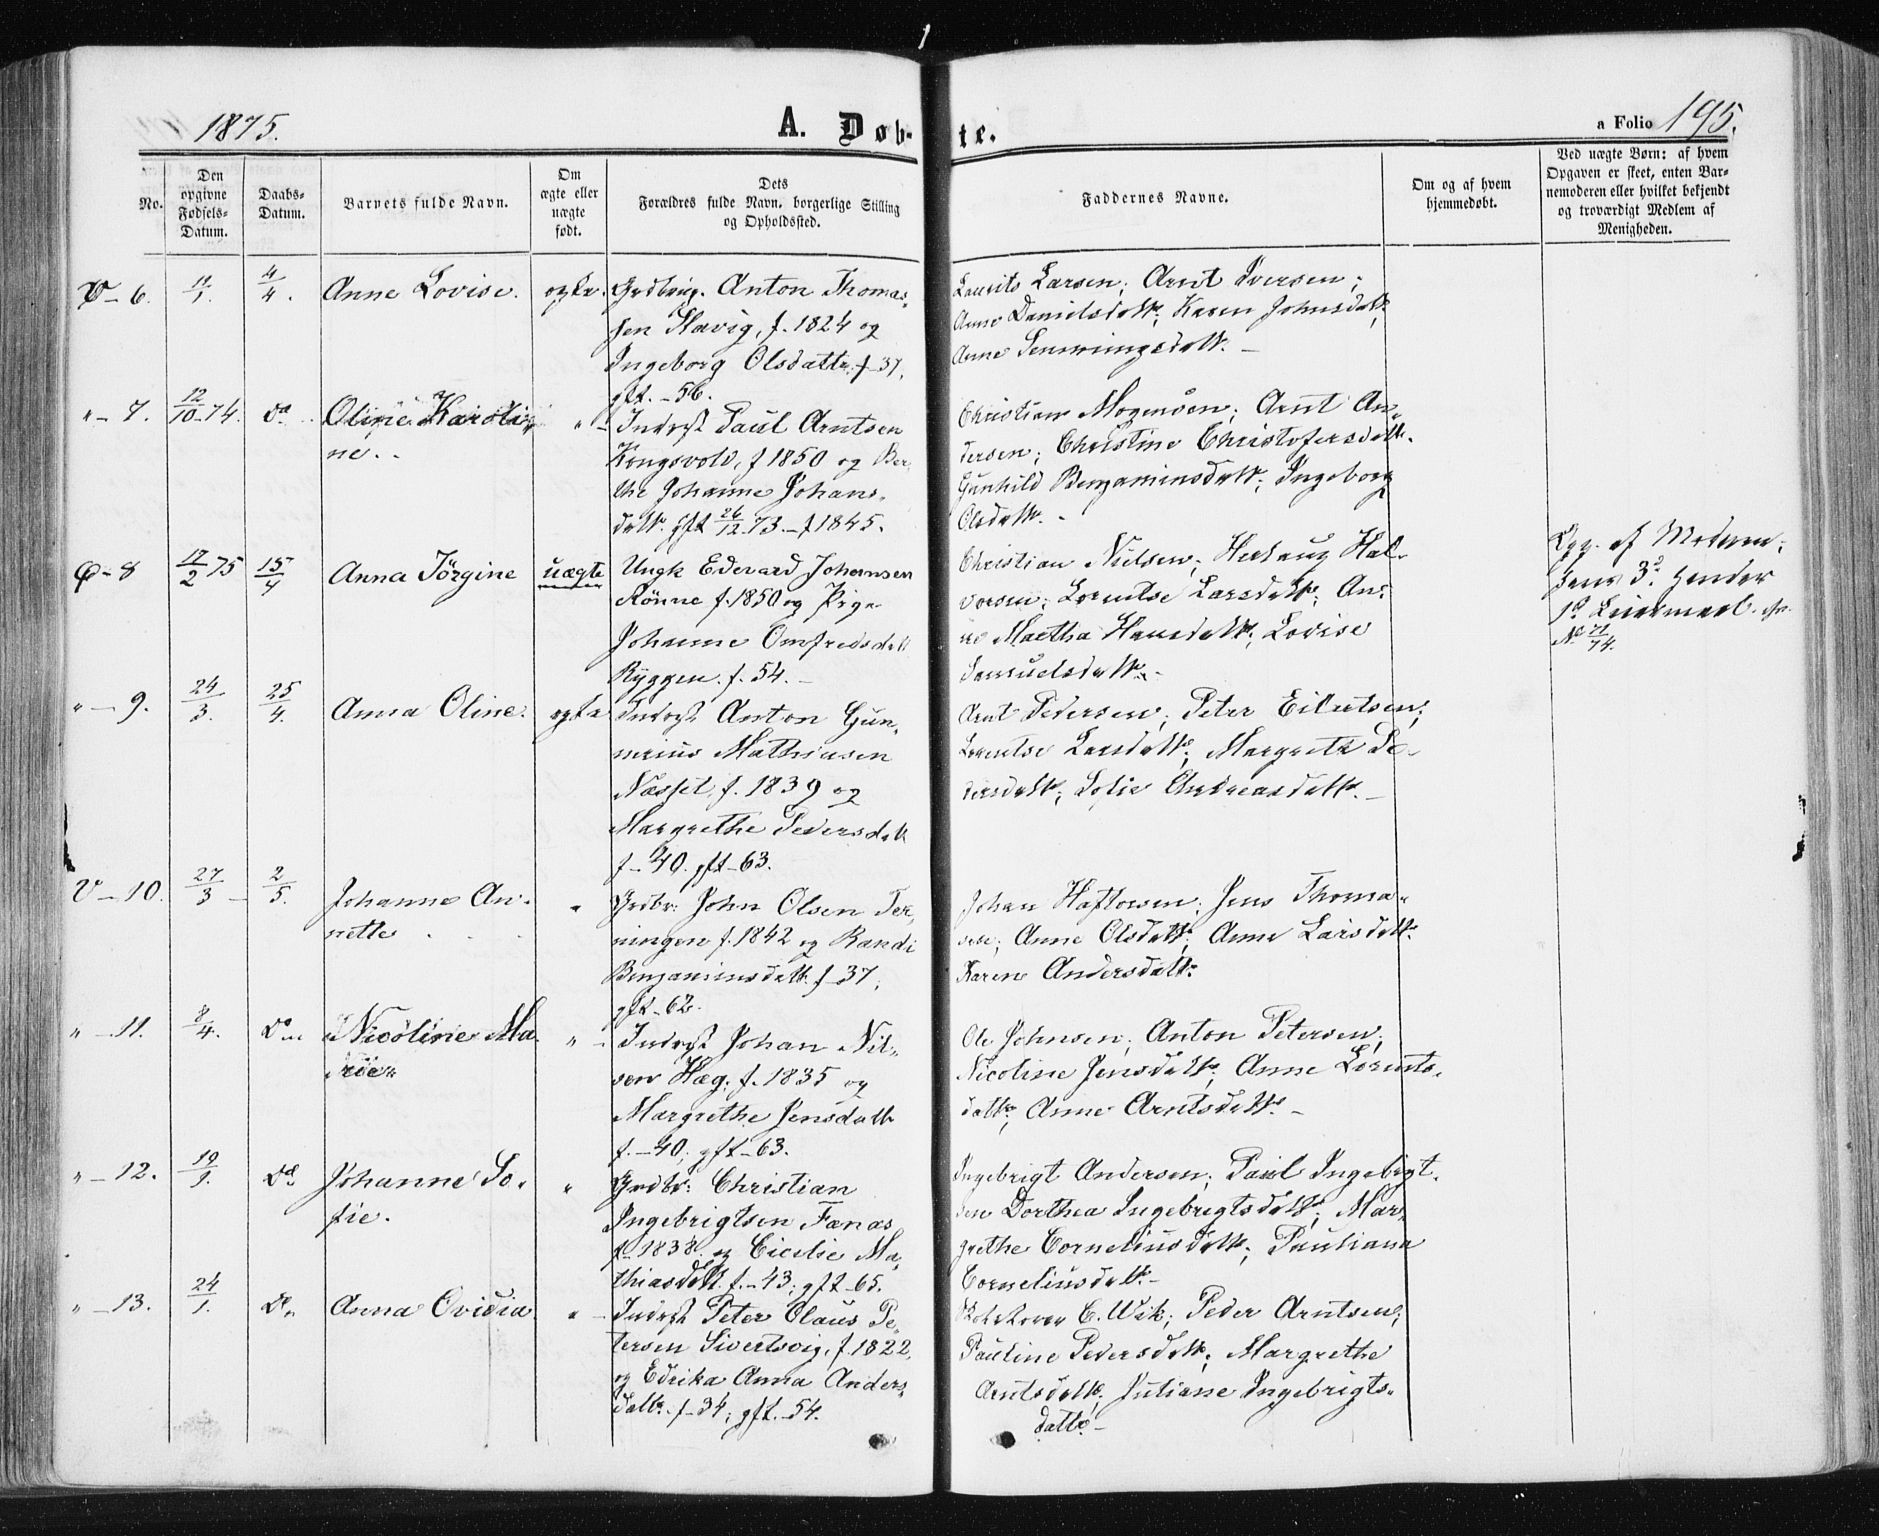 1875.
A. Døb-
te.
a Folio 195.
No.
Den
opgivne
Fødsels-
Datum.
Daabs-
Datum.
Barnets fulde Navn.
Om
ægte eller
uægte
født.
Dets
Forældres fulde Navn, borgerlige Stilling
og Opholdssted.
Faddernes Navne.
Om og af hvem
hjemmedøbt.
Ved uægte Børn: af hvem
Opgaven er skeet, enten Bar-
nemoderen eller hvilket bekjendt
og troværdigt Medlem af
Menigheden.
6. 4/4. Anne Lovise. ægte.
Grdbrug. Anton Thomas-
sen Slavig, f. 1824 og
Ingeborg Olsdattr. f-37,
gft. -56.
Laurits Larsen; Arnt Iversen;
Anne Danielsdattr; Karen Johnsdattr;
Anne
"-7. 12/10-74. do Oline Karoli-
ne. "
Indrst Paul Arntsen
Kongsvold, f 1850 og Ber-
the Johanne Johans-
datt. gft 26/12 73. - f 1845.
Christian Mogensen; Arnt An-
dersen; Christine Christofersdatt.
Gunhild Benjaminsdatt; Ingeborg
Olsdatt. -
8 17/2 75 15/4 Anna Jörgine uægte
Ungk Edevard Johansen
Rönne f. 1850 og Pige
Johanne Omfredsdatt
Ryggen. f. 54. -
Christian Nielsen; Herlaug Hal-
vorsen; Lorentse Larsdatt; An-
ne Martha Hansdatt; Lovise
Samuelsdatt. -
Opg. af Moderen;
hans 3d hendes
1ste Leiermaal.
No 71/74.
"-9. 24/3. 25/4. Anna Oline. ægte
Indrst Anton Gun-
nerius Mathiasen
Næsset, f. 1839 og
Margrethe Pedersdatt
f-40. gft-63.
Arnt Pedersen; Peter Eilertsen;
Lorentse Larsdatt; Margrete Pe-
dersdatt; Sofie Andreasdatt. -
V-10. 27/3 - 2/5. Johanne An-
nette "
Grdbr: John Olsen Ter-
ningen f. 1842 og Randi
Benjaminsdatt. f-37,
gft-62.
Johan Haftorsen; Jens Thoma-
sen; Anne Olsdatt; Anne Larsdatt.
Karen Andersdatt.
"-11. 8/4. do Nicoline Ma-
rie "
Indrst Johan Nil-
sen Hæg, f. 1835 og
Margrethe Jensdatt
f.-40; gft-63.
Ole Johnsen; Anton Petersen;
Nicoline Jensdatt; Anne Lorents-
datt; Anne Arntsdatt. -
"-12. 19/1. do Johanne So-
fie. "
Grdbr: Christian
Ingebrigtsen Fænas
f. 1838. og Cicilie Ma-
thiasdatt. f.-43; gft-65.
Ingebrigt Andersen; Paul Ingebrigt-
sen Dorthea Ingebrigtsdatt; Mar-
grethe Corneliusdatt; Pauliana
Corneliusdatt. -
"-13. 24/1. do Anna Ovidia "
Indrst Peter Olaus Pe-
tersen Sivertsvig, f. 1822,
og Edrika Anna Anders-
datt. f-34; gft.-54.
C. Wik; Peder Arntsen;
Pauline Pedersdatt; Margrethe
Arntsdatt; Juliane Ingebrigts-
datt. -